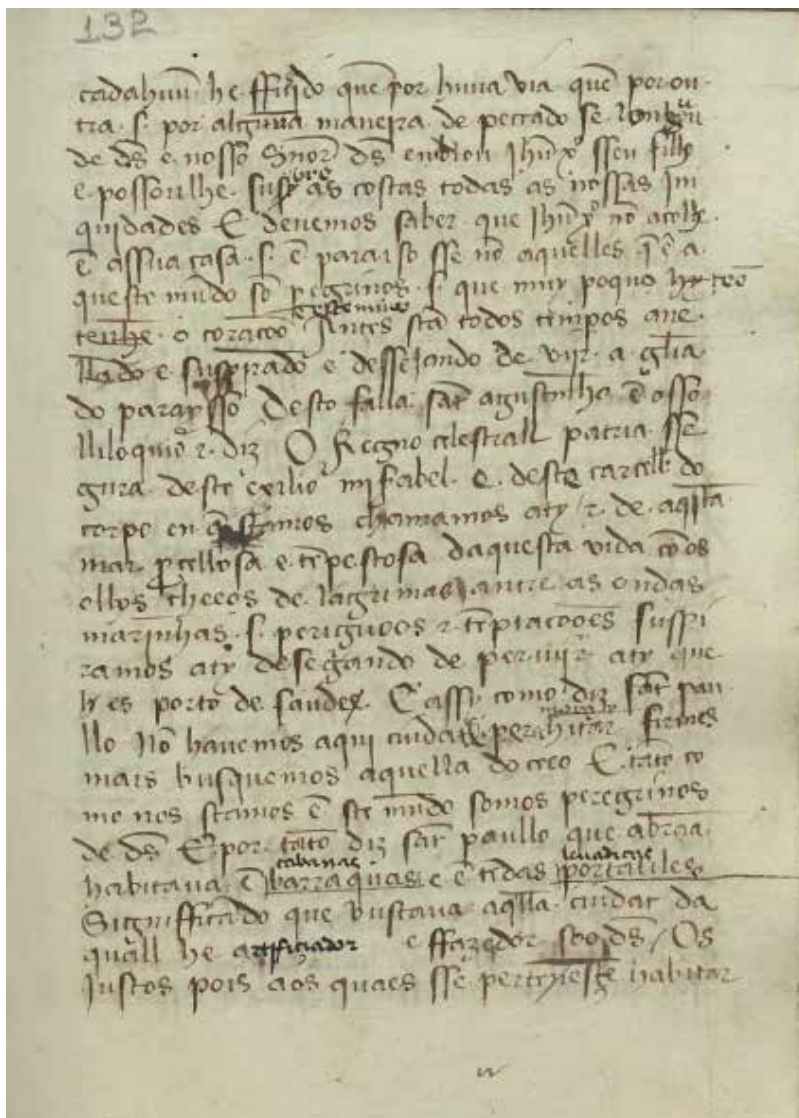 132
cadahuũ he fferido que por huna via que por ou
tra .s. por algũua maneira de peccado se
de d̃s e nosso Sñor d̃s enviou Jhũ x̃o sseu filho
e possoulhe sus as costas todas as nossas jni
quidades E devemos saber que Jhũ x̃o nõ acolhe
ẽ assua casa .s. ẽ paraiso sse nõ aquelles q̃ ẽ a
queste mũdo sõ peregrinos .s. que muy poquo
tenhe o coraçoõ Antes stã todos tempos ane
llãdo e suspirãdo e dessejando de vijr a gl̃ia
do parayso Desto falla sãt agustinho ẽ o sso
lliloquio r diz O Regno celestrall patria sse
gura deste exilio misabel e deste carcell do
corpo en q̃ stamos chamamos a ty r de aq̃sta
mar percellosa e tẽpestosa daquesta vida cõ os
ollos cheeos de lagrimas antre as ondas
marinhas .s. perigũoos r tẽptacoões suspi
ramos a ty desegãndo de pervijr a ty que
hes porto de saude E assy como diz sãt pau
llo Nõ havemos aqui cuidade pera hitar firmes
mais busquemos aquella do ceeo E tãto co
mo nos stamos ẽ ste mũdo somos peregrinos
de d̃s E por tãto diz sãt paullo que abrãa
cabanas levadiças
habitava ẽ barraquas e ẽ tẽdas portatiles
Significãdo que bustava aq̃lla ciudat da
quall he artificiador e ffazedor soo d̃s / Os
Justos pois aos quaes sse pertẽesçe habitar